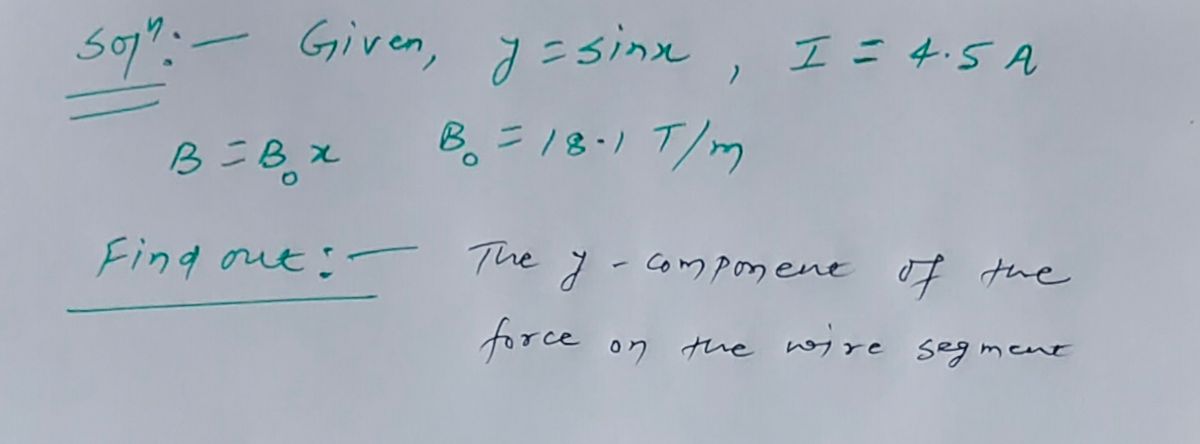 Solⁿ:— Given, y = sinx , I = 4.5 A
B = B₀ x B₀ = 18.1 T/m
Find out :— The y - component of the
force on the wire segment